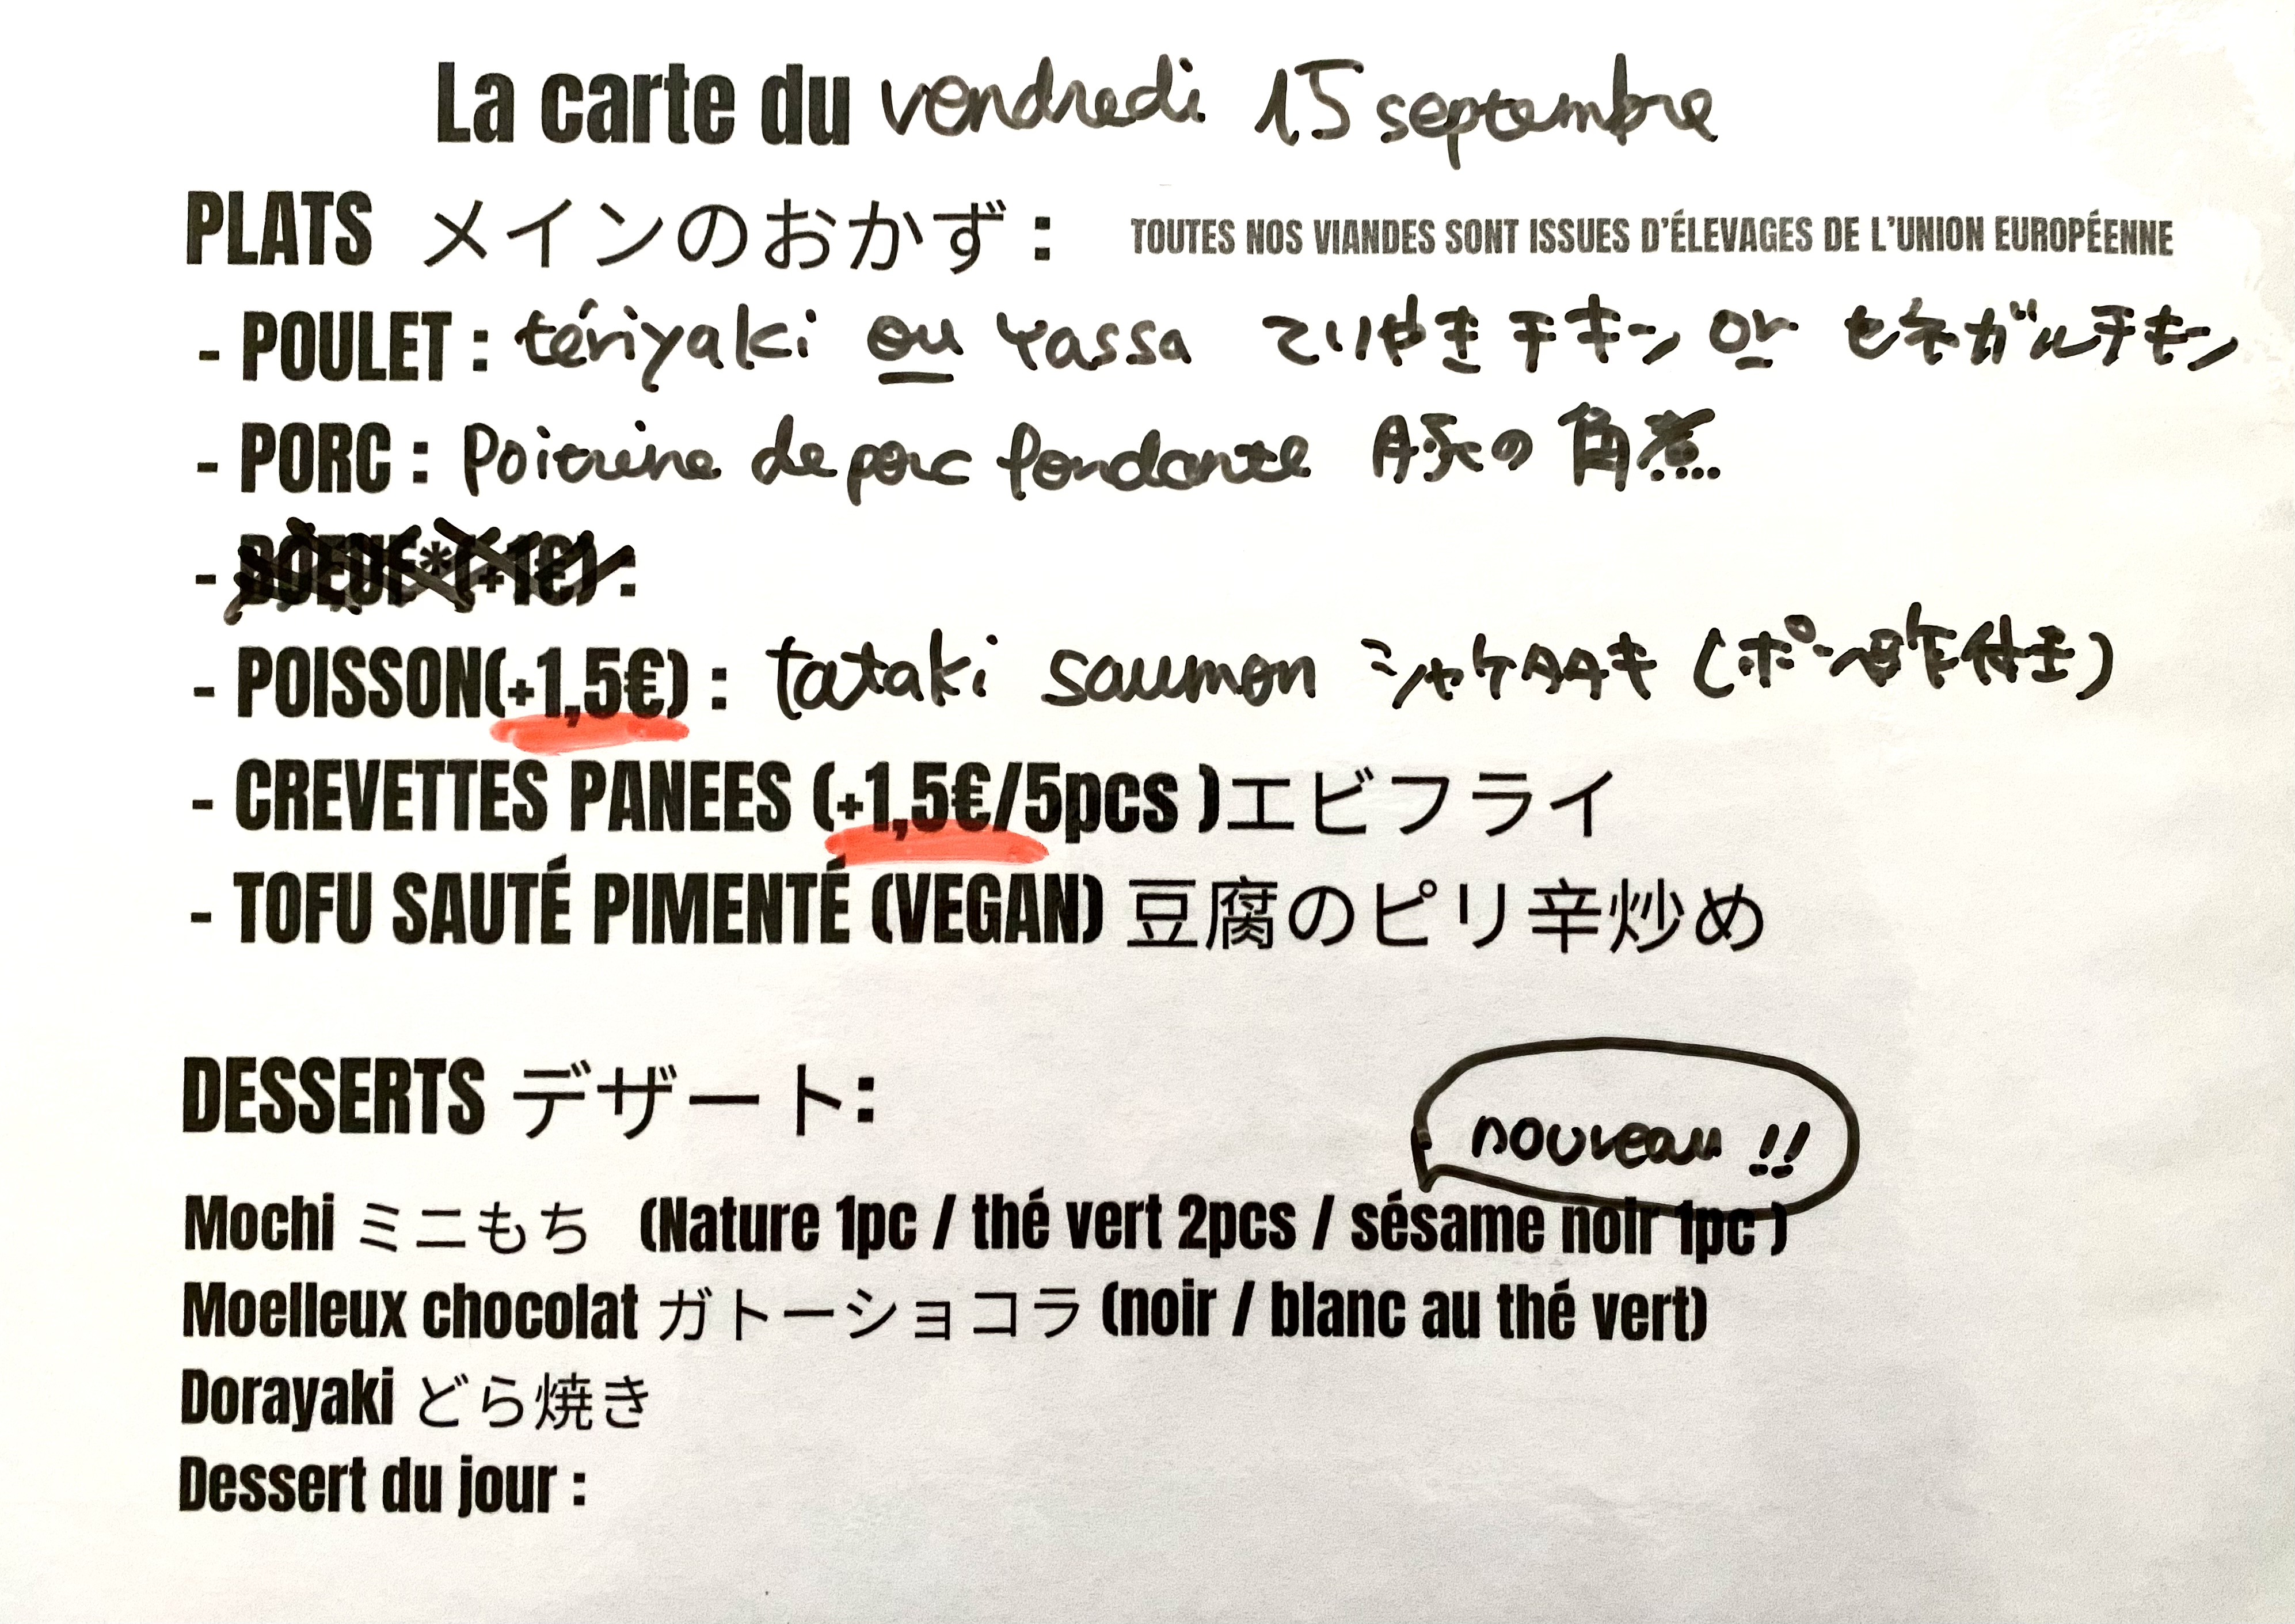 La carte du vendredi 15 septembre
PLATS メインのおかず :
TOUTES NOS VIANDES SONT ISSUES D'ÉLEVAGES DE L'UNION EUROPÉENNE
- POULET : tériyaki ou Yassa てりやきチキン or セネガルチキン
- PORC : Poitrine de porc fondante 豚の角煮
- BOEUF*(+1€) :
- POISSON(+1,5€) : tataki saumon シャケタタキ (ポン酢
- CREVETTES PANEES (+1,5€/5pcs )エビフライ
- TOFU SAUTÉ PIMENTÉ (VEGAN) 豆腐のピリ辛炒め
DESSERTS デザート:
nouveau !!
Mochi ミニもち (Nature 1pc / thé vert 2pcs / sésame noir 1pc )
Moelleux chocolat ガトーショコラ (noir / blanc au thé vert)
Dorayaki どら焼き
Dessert du jour :